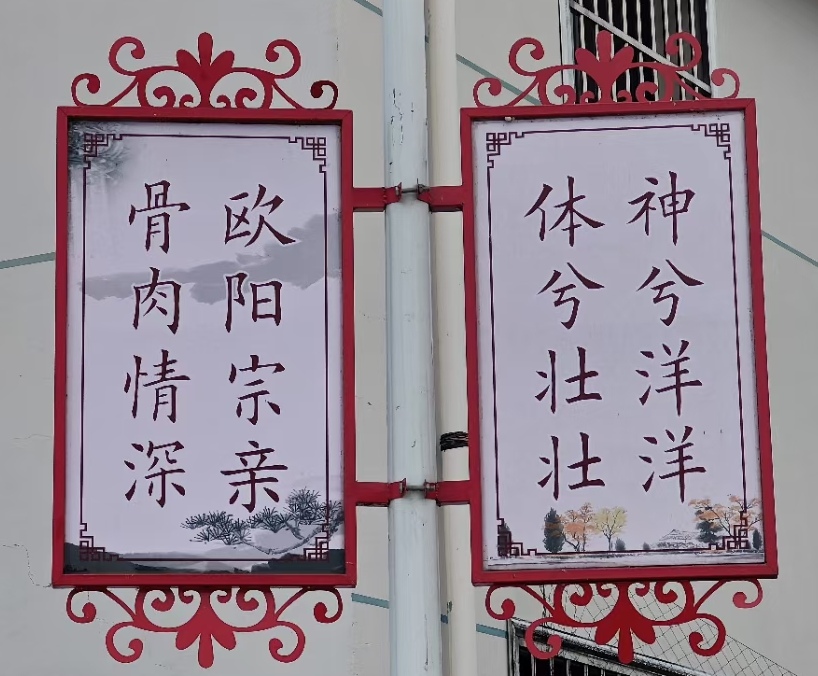 神兮洋洋
体兮壮壮
欧阳宗亲
骨肉情深